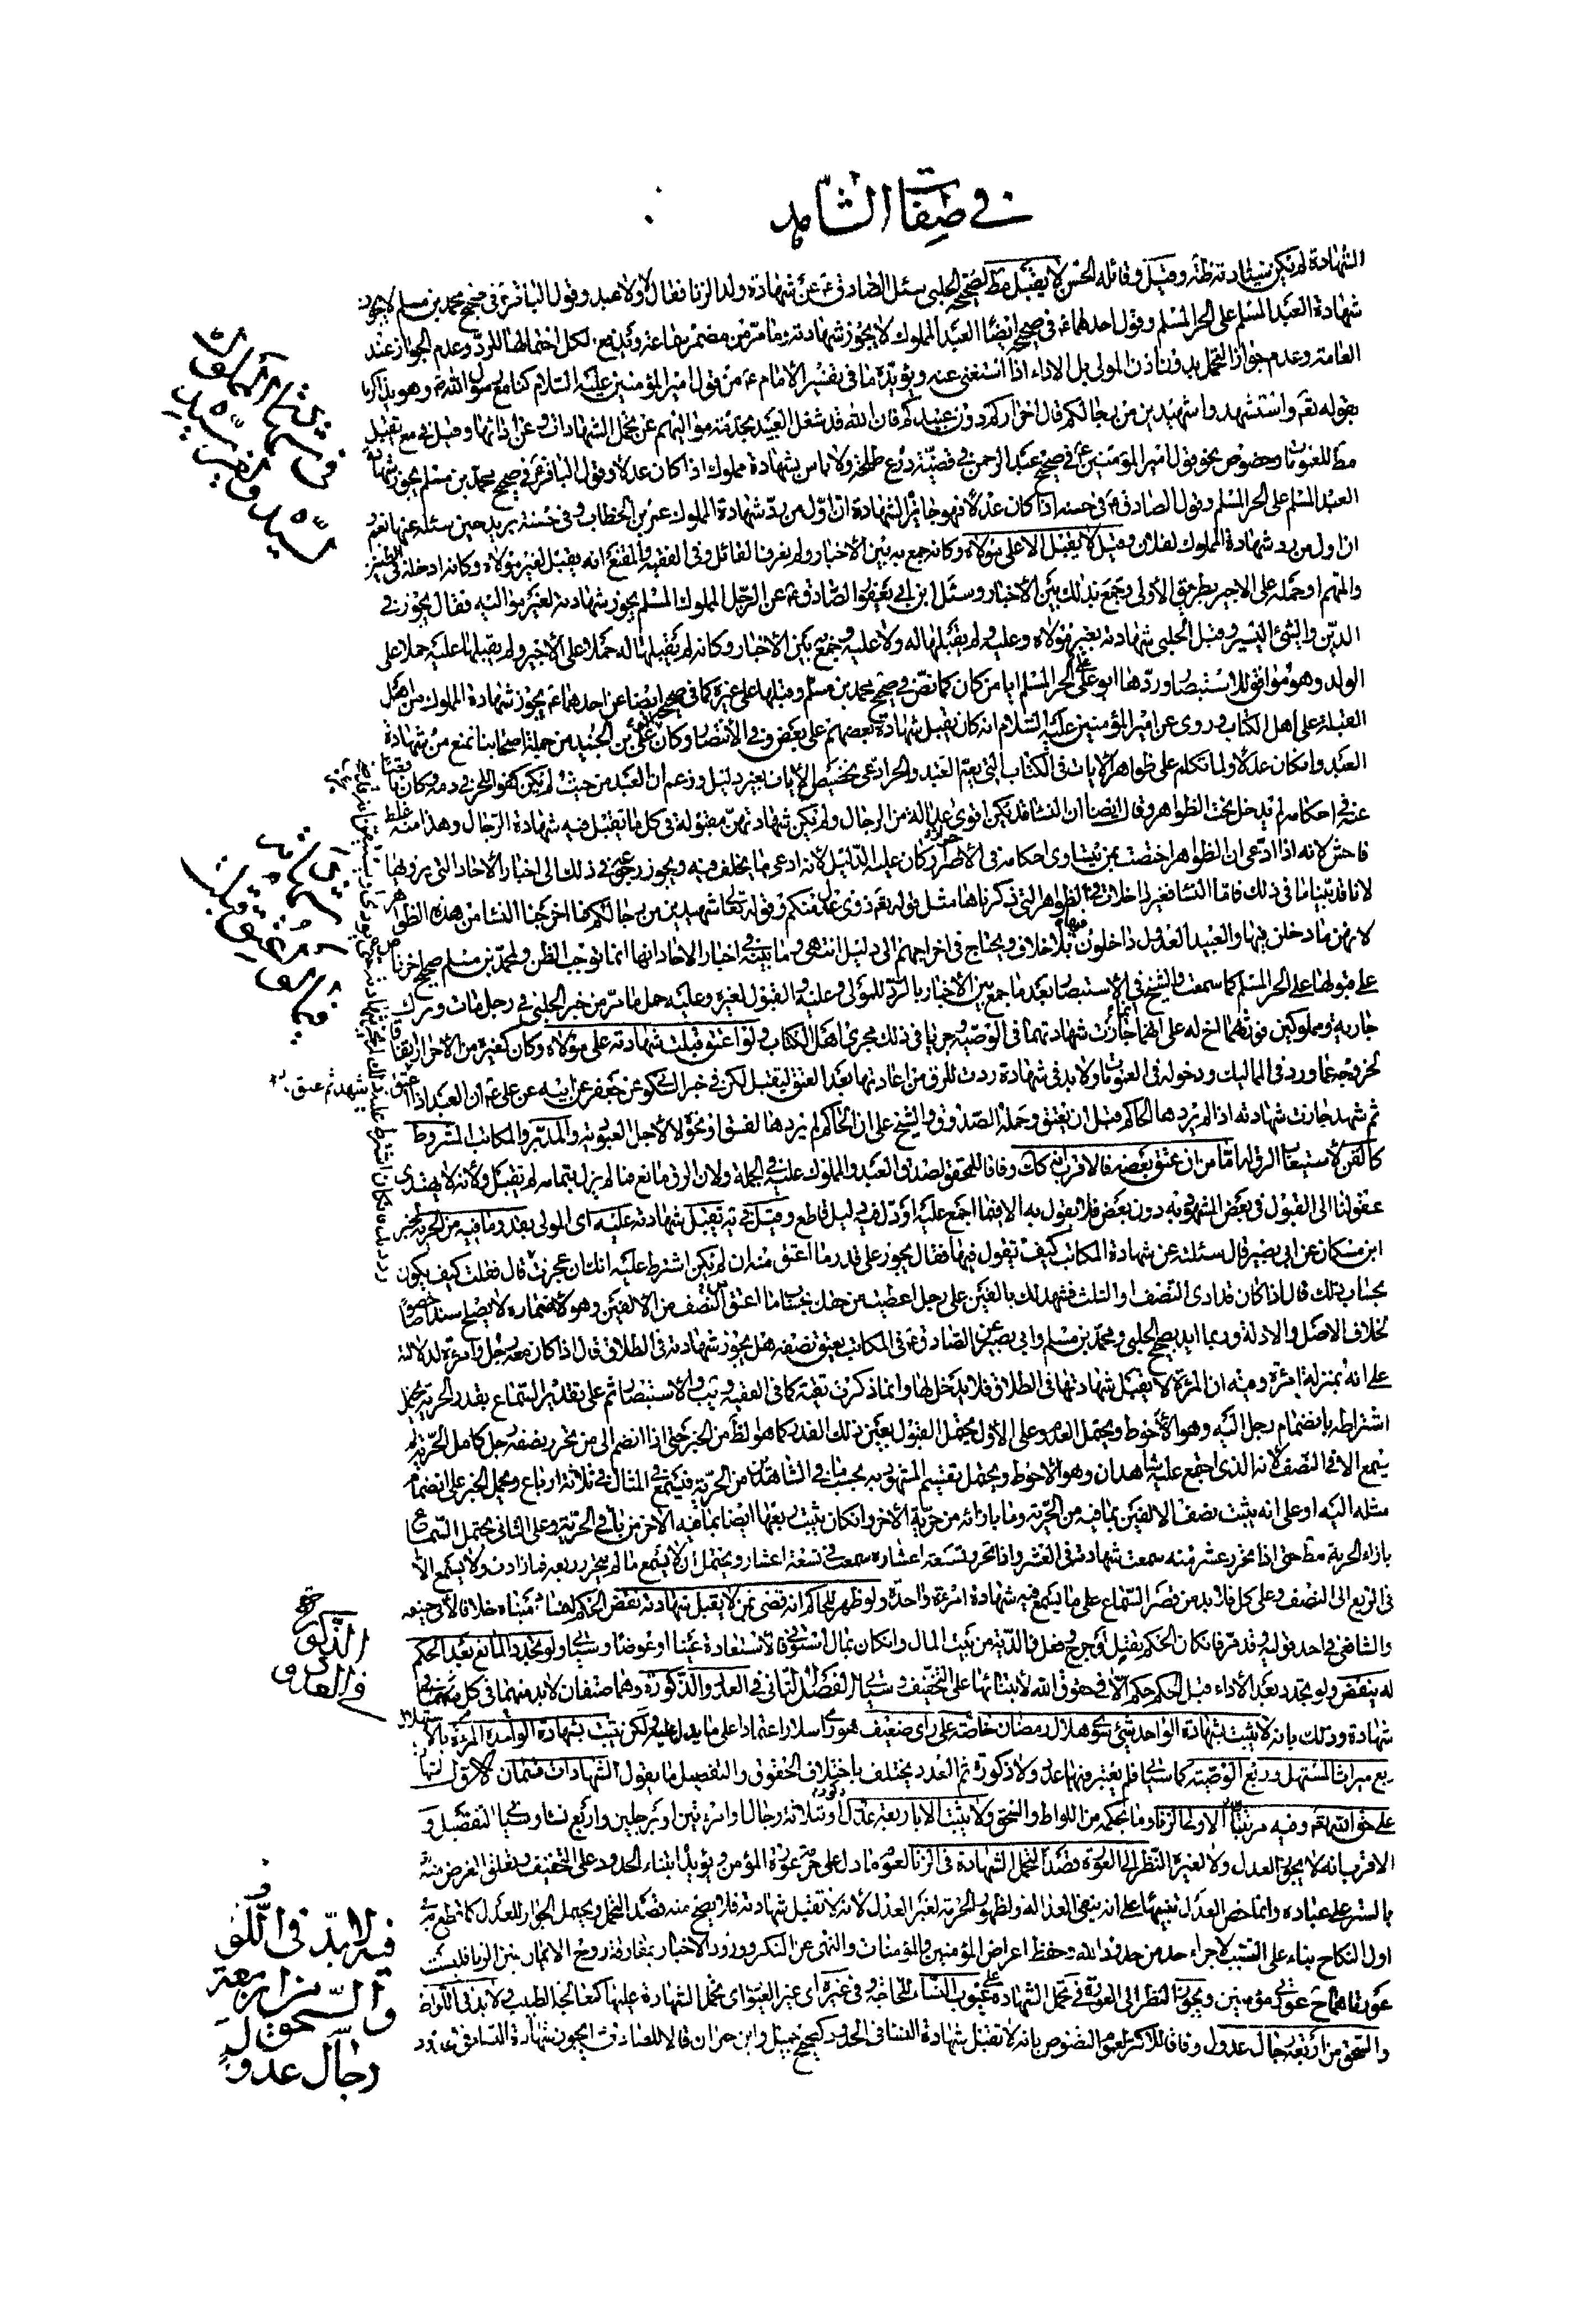 في صفات الشاهد
الشهادة لم يكن شهادته ظنة وقيل وقائله الحسن لا يقبل مط لصحيح الحلبي سئل الصادق ع عن شهادة ولد الزنا فقال لا ولا عبد وقول الباقر ع في صحيح محمد بن مسلم لا يجوز
شهادة العبد المسلم على الحر المسلم وقول احدهما ع في صحيحه ايضا العبد المملوك لا يجوز شهادته وما مر من مضمر سماعة وقد منع لكل احتمالها للرد وعدم الجواز عند
العامة وعدم جواز التحمل بدون اذن المولى بل الاداء اذا استغنى عنه ويؤيده ما في تفسير الامام ع من قول امير المؤمنين عليه السلام كنا مع رسول الله ص وهو يذاكرنا
بقوله تعم واستشهدوا شهيدين من رجالكم قال احراركم دون عبيدكم فان الله قد شغل العبيد بخدمة مواليهم عن تحمل الشهادات وعن ادائها وقيل في مع تقبل
مط للعمومات وخصوص نحو قول امير المؤمنين ع في صحيح عبد الرحمن في قضية درع طلحة ولا باس بشهادة مملوك اذا كان عدلا وقول الباقر ع في صحيح محمد بن مسلم يجوز شهادة
العبد المسلم على الحر المسلم وقول الصادق ع في حسنه اذا كان عدلا فهو جائز الشهادة ان اول من رد شهادة المملوك عمر بن الخطاب وفي حسنة بريد حين سئله عنها نعم
ان اول من رد شهادة المملوك لفلان وقيل لا يقبل الا على مولاه وكانه جمع به بين الاخبار ولم يعرف القائل وفي الفقيه والمقنع انه يقبل لغير مولاه وكانه ادخله في الظنين
والمتهم او حمله على الاجير بطريق الاولى وجمع بذلك بين الاخبار وسئل ابن ابي يعفور الصادق ع عن الرجل المملوك المسلم يجوز شهادته لغير مواليه فقال يجوز في
الدين والشئ اليسير وقبل الحلبي شهادته بغير مولاه وعليه ولم يقبلها له ولا عليه وجمع به بين الاخبار وكانه لم يقبلها له حملا على الاجير ولم يقبلها عليه حملا على
الولد وهو موافق للاستبصار وردها ابو علي على الحر المسلم ايا من كان كما نص في صحيح محمد بن مسلم وقبلها على غيره كما في صحيحه ايضا عن احدهما ع يجوز شهادة المملوك من اهل
القبلة على اهل الكتاب وروى عن امير المؤمنين عليه السلام انه كان يقبل شهادة بعضهم على بعض وفي الانتصار وكان ابو علي بن الجنيد من جملة اصحابنا تمنع من شهادة
العبد وان كان عدلا ولما تكلم على ظواهر الايات في الكتاب التي يعم العبد والحر ادعى تخصيص الايات بغير دليل وزعم ان العبد من حيث لم يكن كفوا للحر في دمه وكان ناقصا
عنه في احكامه لم يدخل تحت الظواهر وقال ايضا ان النساء قد يكن اقوى عدالة من الرجال ولم يكن شهادتهن مقبولة في كل ما يقبل فيه شهادة الرجال وهذا منه غلط
فاحش لانه اذا ادعى ان الظواهر اختصت بمن يتساوى احكامه في الاحرار كان عليه الدليل لانه ادعى ما يخالف فيه ولا يجوز رجوعه في ذلك الى اخبار الاحاد التي يرويها
لانا قد بينا ما في ذلك فاما النساء فغير داخلات في الظواهر التي ذكرناها مثل قوله تعم ذوى عدل منكم وقوله تعالى شهيدين من رجالكم فما اخرجنا النساء من هذه الظواهر
لانهن ما دخلن فيها والعبيد العدول داخلون فيها بلا خلاف ويحتاج في اخراجهم الى دليل انتهى وما بينه في اخبار الاحاد انها انما توجب الظن ولمحمد بن مسلم صحيح اخر ناص
على قبولها على الحر المسلم كما سمعت والشيخ في الاستبصار بعد ما جمع بين الاخبار بالرد للمولى وعليه والقبول لغيره وعليه حمل ما مر من خبر الحلبي في رجل مات وترك
جارية ومملوكين فورثهما اخ له على انهما جازت شهادتهما في الوصية وجريا في ذلك مجرى اهل الكتاب ولو اعتق قبلت شهادته على مولاه وكان كغيره من الاحرار اتفاقا
لخروجه عما ورد في المماليك ودخوله في العمومات ولا بد في شهادة ردت للرق من اعادتها بعد العتق ليقبل لكن في خبر السكوني عن جعفر عن ابيه عن علي ع ان العبد اذا شهد ثم عتق
ثم شهد جازت شهادته اذا لم يردها الحاكم قبل ان يعتق وحمله الصدوق والشيخ على ان الحاكم لم يردها لفسق او نحوه لا لاجل العبودية والمدبر والمكاتب المشروط
كالقن لاستيعاب الرق لهما اما من انعتق بعضه فالاقرب انه كك وفاقا للمحقق لصدق العبد والمملوك عليه في الجملة ولان الرق مانع فما لم يزل بتمامه لم يقبل ولانه لا يهتدي
عقولنا الى القبول في بعض المشهود به دون بعض فلا يقول به الا فيما اجمع عليه او دل فيه دليل قاطع وقيل في ية تقبل شهادته عليه اى المولى بقدر ما فيه من الحرية لخبر
ابن مسكان عن ابي بصير قال سئلته عن شهادة المكاتب كيف تقول فيها فقال يجوز على قدر ما اعتق منه ان لم يكن اشترط عليه انك ان عجزت قال فقلت كيف يكون
بحساب ذلك قال اذا كان قد ادى النصف او الثلث فشهد لك بالفين على رجل اعطيت من حقك بحساب ما اعتق النصف من الالفين وهو لاضماره لا يصلح سندا خصوصا
لخلاف الاصل والادلة وربما ايد بصحيح الحلبي ومحمد بن مسلم وابي بصير عن الصادق ع في المكاتب يعتق نصفه هل يجوز شهادته في الطلاق قال اذا كان معه رجل وامرءة لدلالته
على انه بمنزلة امرءة وفيه ان المرءة لا يقبل شهادتها في الطلاق فلا مدخل لها وانما ذكرت تقية كما في الفقيه ويب والاستبصار ثم على تقدير السماع بقدر الحرية يحتمل
اشتراطه بانضمام رجل اليه وهو الاحوط ويحتمل العدم وعلى الاول يحتمل القبول بعين ذلك القدر كما هو لظ من الخبر حتى اذا انضم الى من تحرر نصفه رجل كامل الحرية لم
يسمع الا في النصف لانه الذى اجتمع عليه شاهدان وهو الاحوط ويحتمل تقسيم المشهود به بحسب ما في الشاهدين من الحرية فيسمع في المثال في ثلاثة ارباع ويحمل الخبر على انضمام
مثله اليه او على انه يثبت نصف الالفين بما فيه من الحرية وما بازائه من حرية الاخر وان كان يثبت ربعها ايضا بما فيه الاخر من باقي الحرية وعلى الثاني يحتمل السماع
بازاء الحرية مط حتى اذا تحرر عشر منه سمعت شهادته في العشر واذا تحرر تسعة اعشاره سمعت في تسعة اعشار ويحتمل ان لا يسمع ما لم يتحرر ربعه فما زاد ولا يسمع الا
في الربع الى النصف وعلى كل فلا بد من قصر السماع على ما يسمع فيه شهادة امرءة واحدة ولو ظهر للحاكم انه قضى بمن لا يقبل شهادته نقض الحكم لفساد مبناه خلافا لابي حنيفه
والشافعي في احد قوليه وقد مر فان كان الحكم بقتل او جرح وفعل فالدية من بيت المال وان كان بمال استوفى فالاستعادة عينا او عوضا وسياتي ولو تجدد المانع بعد الحكم
لم ينقض ولو تجدد بعد الاداء قبل الحكم حكم الا في حقوق الله لابتنائها على التخفيف وسياتي الفصل الثاني في العدد والذكورة وهما صنفان لابد منهما في كل
شهادة وذلك بانه لا يثبت بشهادة الواحد شئ سوى هلال رمضان خاصة على راى ضعيف هو راى سلار اعتمادا على ما يدل عليه ولكن يثبت بشهادة الواحدة المرءة بالاستهلال
ربع ميراث المستهل وربع الوصية كما سياتي فلم يعتبر فيها عدد ولا ذكورة ثم العدد يختلف باختلاف الحقوق والتفصيل ما يقول الشهادات قسمان الاول انها
على حق الله تعم وفيه مرتبتان الاولى الزنا وما بحكمه من اللواط والسحق ولا يثبت الا باربعة عدول ذكور او بثلاثة رجال وامرءتين او برجلين واربع نساء وسياتي التفصيل و
الاقرب انه لا يجوز العدل ولا لغيره النظر الى العورة قصدا لتحمل الشهادة في الزنا لعموم ما دل على حرمة عورة المؤمن ويؤيده ابتناء الحدود على التخفيف وتعلق الغرض منه
بالستر على عباده وانما خص العدل تنبيها على انه ينفي العدالة ولظهور الحرمة لغير العدل لانه لا تقبل شهادته فلا يصح منه قصد التحمل ويحتمل الجواز للعدل كما قطع به في
اول النكاح بناء على التسبب لاجراء حد من حدود الله وحفظ اعراض المؤمنين والمؤمنات والنهى عن المنكر وورود الاخبار بمفارقة روح الايمان بين الزنا فليست
عورتاهما ح عورتي مؤمنين ويجوز النظر الى العورة في تحمل الشهادة على عيوب النساء للحاجة وفي غيره اى غير العيوب اى تحمل الشهادة عليها كمعالجة الطبيب ولابد في اللواط
والسحق من اربعة رجال عدول وفاقا للاكثر لعموم النصوص بانه لا تقبل شهادة النساء في الحدود كصحيح جميل وابن حمران قالا للصادق ع ايجوز شهادة النساء في الحدود
في شهادة المملوك
في الذكورة
والعدد
فيه لابد في اللواط
والسحق من اربعة
رجال عدول